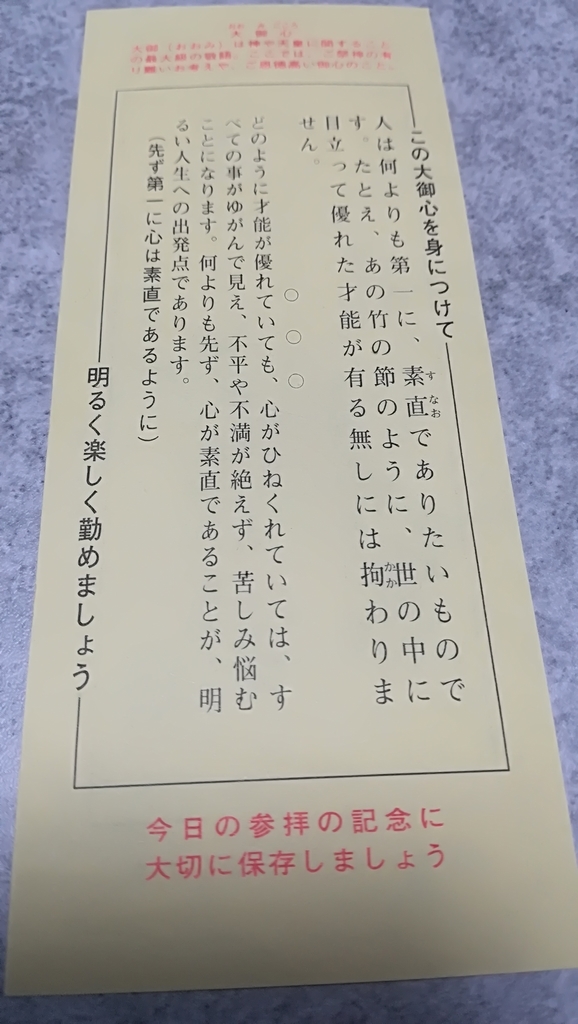 おおみごころ
大御心
大御（おおみ）は神や天皇に関すること
の最大級の敬語、ここでは、ご祭神の有
り難いお考えや、ご思慮高い御心のこと。
この大御心を身につけて
人は何よりも第一に、素直でありたいもので
す。たとえ、あの竹の節のように、世の中に
目立って優れた才能が有る無しには拘わりま
せん。
○○○
どのように才能が優れていても、心がひねくれていては、す
べての事がゆがんで見え、不平や不満が絶えず、苦しみ悩む
ことになります。何よりも先ず、心が素直であることが、明
るい人生への出発点であります。
（先ず第一に心は素直であるように）
明るく楽しく勤めましょう
今日の参拝の記念に
大切に保存しましょう